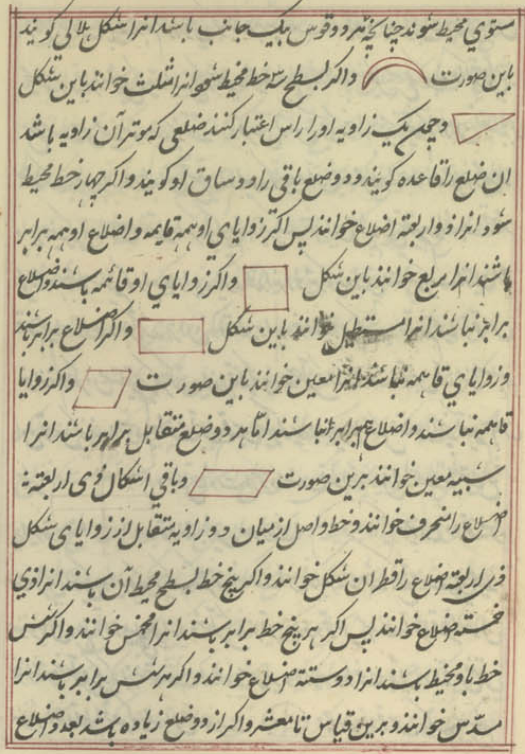 مستوي محيط شوند چنانچه هر دو قوس بيک جانب باشند انرا شکل هلالي کويند
باين صورت واکر بسطح سه خط محيط شود انرا مثلث خوانند باين شکل
وچون يک زاويه اورا راس اعتبار کنند ضلعي که موتر آن زاويه باشد
ان ضلع را قاعده کويند ودو ضلع باقي را دو ساق او کويند واکر چهار خط محيط
شود انرا ذو اربعة اضلاع خوانند پس اکر زواياي او همه قايمه و اضلاع او همه برابر
باشند انرا مربع خوانند باين شکل واکر زواياي او قائمه باشند واضلاع
برابر نباشند انرا مستطيل خوانند باين شکل واکر اضلاع برابر باشند
وزواياي قايمه نباشند انرا معين خوانند باين صورت واکر زوايا
قايمه نباشند واضلاع برابر نباشند اما هر دو ضلع متقابل برابر باشند انرا
شبيه معين خوانند برين صورت وباقي اشکال ذوى اربعة
اضلاع را منحرف خوانند وخط واصل از ميان دو زاويه متقابل از زواياى شکل
ذى اربعة اضلاع را قطر ان شکل خوانند واکر پنج خط بسطح محيط آن باشند انرا ذي
خمسة اضلاع خوانند پس اکر هر پنج خط برابر باشند انرا مخمس خوانند واکر شش
خط باو محيط باشند انرا ذو ستة اضلاع خوانند واکر هر شش برابر باشند انرا
مسدس خوانند وبرين قياس تا معشر واکر از ده ضلع زياده باشد بعدد اضلاع